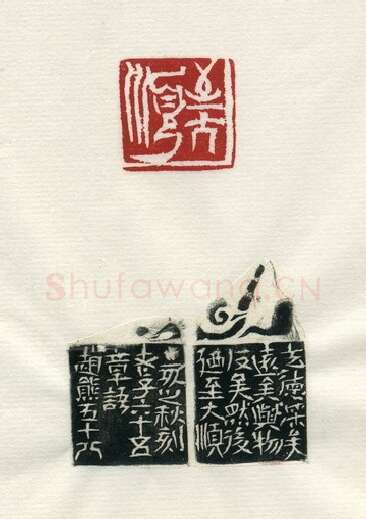 玄德深矣
遠矣與物
反矣然後
廼至大順
亥之秋刻
老子六十五
章語
趙熊五十八
Shufawang.CN